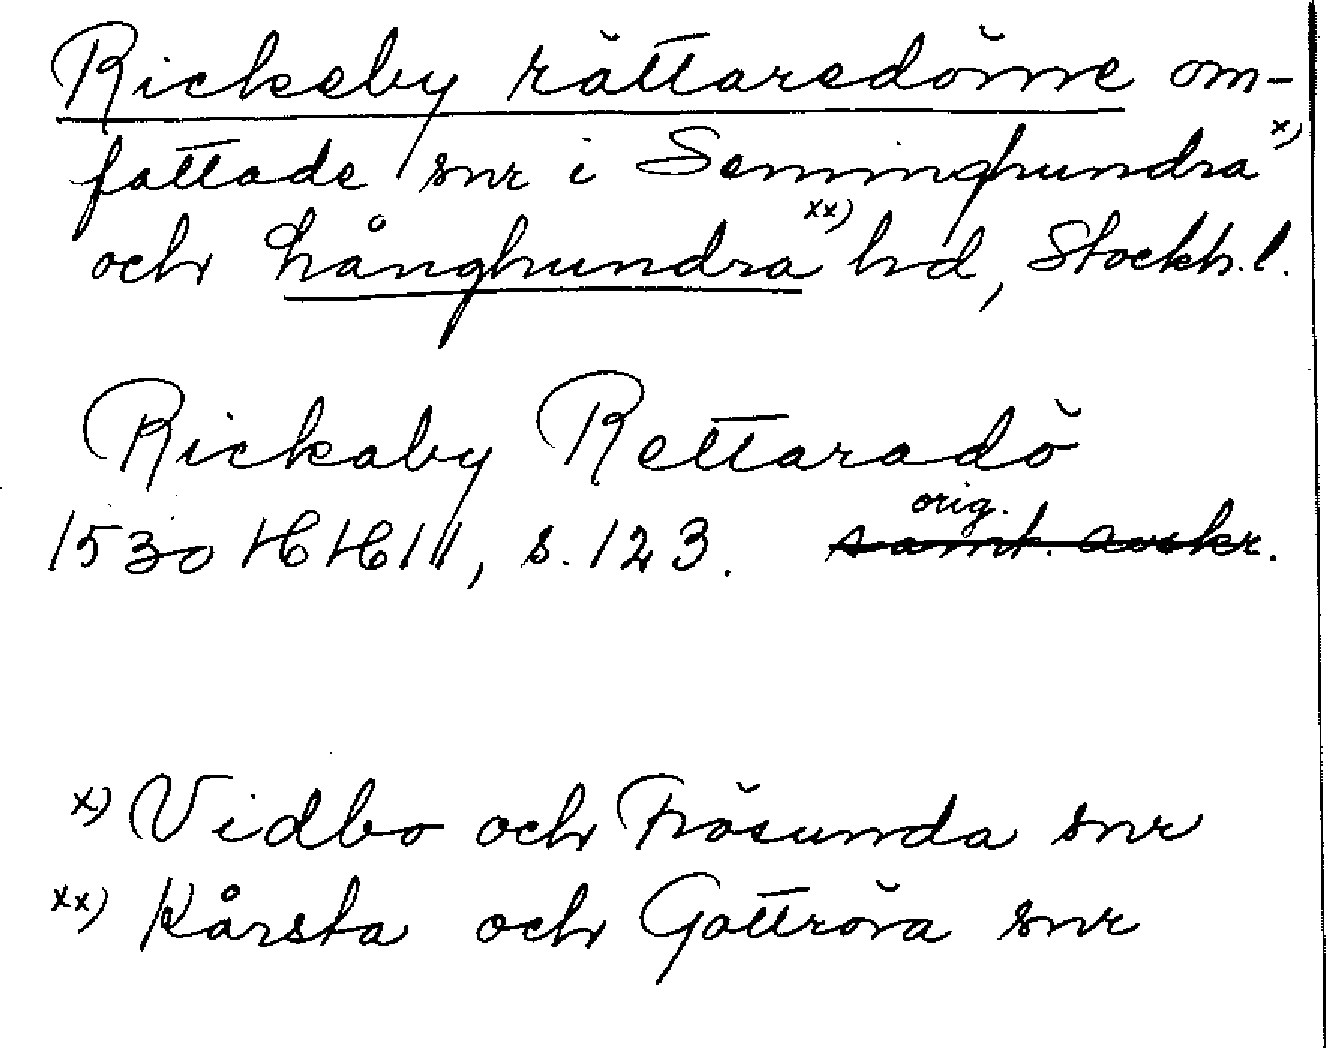 Rickeby rättaredöme om-
fattade snr i Seminghundra x)
och Långhundra xx) hd, Stockh. l.
Rickaby Rettaradö
1530 HH 11, s. 123. orig. samt. avskr.
x) Vidbo och Frösunda snr
xx) Kårsta och Gottröra snr